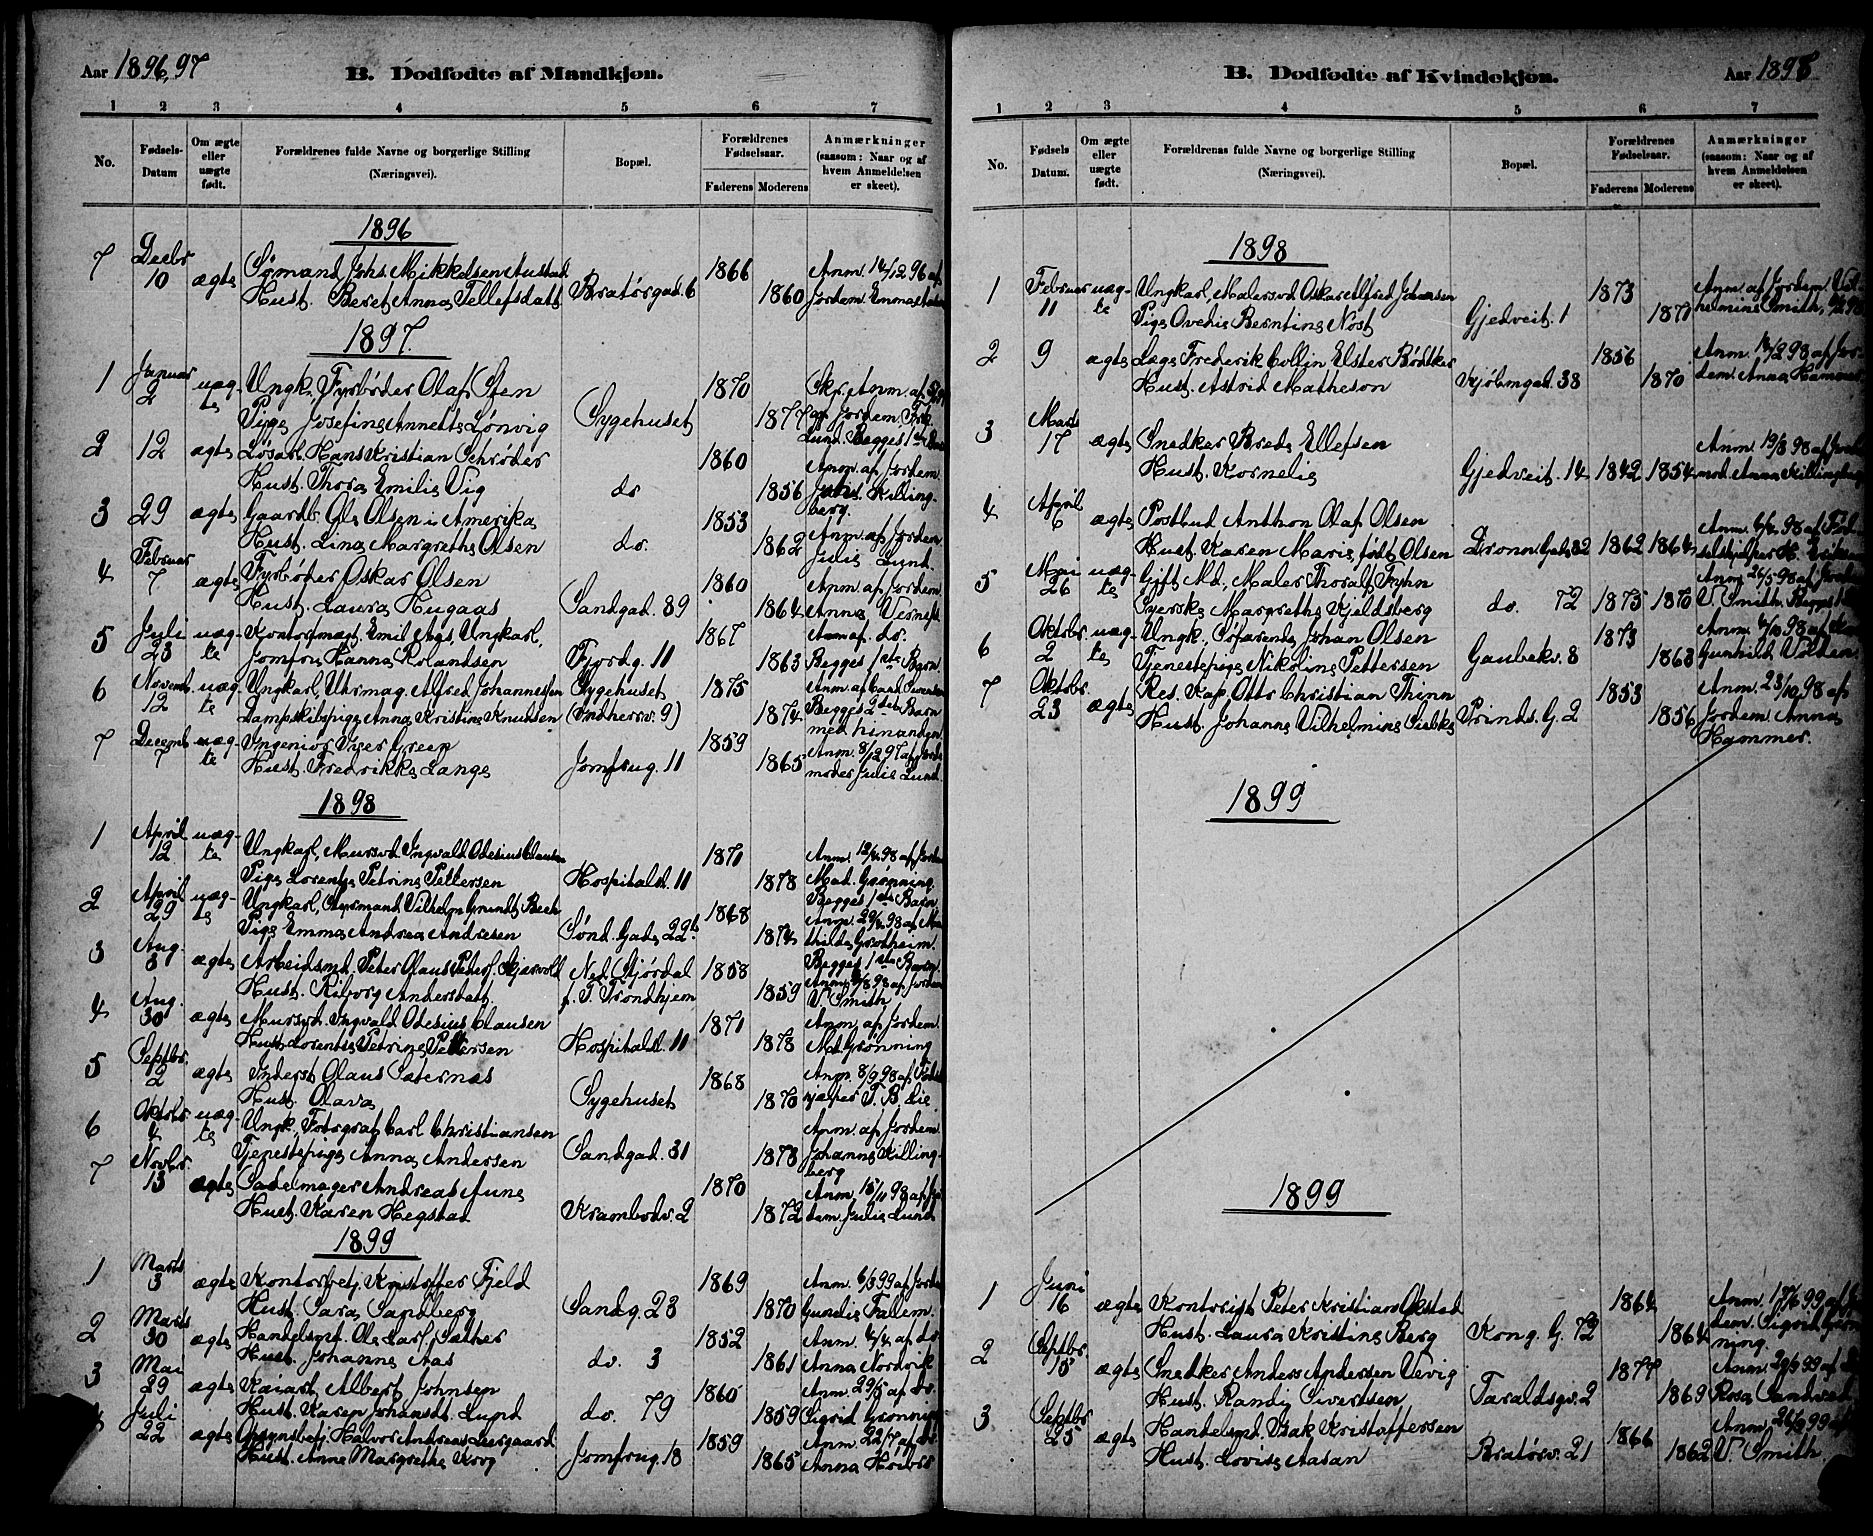 Aar 1896, 97
B. Dødfødte af Mandkjøn.
1 2 3 4 5 6 7
No.
Fødsels-
Datum
Om ægte
eller
uægte
født.
Forældrenes fulde Navne og borgerlige Stilling
(Næringsvei).
Bopæl.
Forældrenes
Fødselsaar.
Faderens Moderens
Anmærkninger
(saasom: Naar og af
hvem Anmeldelsen
er skeet).
1896
7 Decbr 10 ægte Sømand Johs. Mikkelsen Austad 1866 Anm. 14/12 96 af
Hust. Beret Anna Tellefsdatt. Bratørgad. 6 1860 Jordem. Emma
1897.
1 Januar 2 uæg- Ungk. Fyrbøder Olaf Sten 1870 Skr. Anm. af
te Pige Josefine Annette Lønvig Sygehuset 1877 Jordem.
Lund. Begges 1ste
2 12 ægte Løsarb. Hans Kristian Schrøder 1860 Anm. af Jordem.
Hust. Thora Emilie Vig do 1856 Killing-
berg.
3 29 ægte Gaardb. Ole Olsen i Amerika 1853 Anm. af Jordem.
Hust. Lina Margrethe Olsen do. 1862 Julie Lund.
4 Februar 7 ægte Fyrbøder Oskar Olsen 1860 Anm. af Jordem.
Hust. Laura Hugaas Sandgad. 39 1864 Anna
5 Juli 23 uæg- Kontormægt. Emil Aas, Ungkarl, 1867 Anm af do.
te Jomfru Hanna Rolandsen Fjordg. 11 1863 Begges 1ste Barn
6 Novemb. 12 uæg- Ungkarl, Uhrmag. Alfred Johannessen Sygehuset 1875 Anm. af
te Dampskibspige Anna Kristine Knudsen (Indherrsv. 9) 1874 Begges 2det Barn
med hinanden.
7 Decemb 7 uæg- Ingeniør Iver Green 1859 Anm. 8/12 97 af Jorde-
te Hust. Fredrikke Lange Jomfrug. 11 1865 moder Julie Lund.
1898
1 April 12 uæg- Ungkarl, Mursvd. Ingvald Odesius Clausen 1871 Anm. 12/4 98 af Jordem
te Pige Lorentze Petrine Pettersen Hospitalsl. 11 1878 Mad. Grønning.
Begges 1ste Barn
2 April 29 uæg- Ungkarl, Styrmand Vilhelm Grundt Bech 1868 Anm. 29/4 98 af Ma-
te Pige Emma Andrea Andresen Sønd. Gade 22b 1874 thilde Grøtheim.
Begges 1ste Barn.
3 Aug. ægte Arbeidsmd. Peter Olaus Peters. Skjervold Ned. Stjørdal 1858
Hust. Riborg Andersdatt. p. T. Trondhjem 1859 V. Smith
4 Aug. 30 ægte Mursvd. Ingvald Odesius Clausen 1871 Anm. af Jordem.
Hust. Lorentze Petrine Pettersen Hospitalsl. 11 1878 Md. Grønning
5 Septbr. 2 ægte Inderst Olaus Sæternæs 1868 Anm. 8/9 98 af
Hust. Olava Sygehuset 1870 T. B. Lie.
6 Oktobr 4 uæg- Ungk., Fotograf Carl Christiansen Anm. af Jordem.
te Tjenestepige Anna Andersen Sandgad. 31 1878 Johanne Killing-
berg
7 Novbr. 13 ægte Sadelmager Andreas Aune 1870 Anm. 15/11 98 af Jor-
Hust. Karen Hegstad Krambodv. 2 1872 dem. Julie Lund
1899
1 Marts 3 ægte Kontorbetj. Kristoffer Fjeld 1869 Anm. 6/3 99 af Jordem
Hust. Sara Sandberg Sandg. 23 1870
2 Marts 30 ægte Handelsmd. Ole Carl Sæther 1852 Anm. 4/4 af do
Hust. Johanne Aas do. 3 1861 Anna Nordvik
3 Mai 29 ægte Kaiarb. Albert Johnsen 1860 Anm. 29/5 af do.
Hust. Karen Johansdt. Lund do. 79 1859 Sigrid Grønning
Juli 22 ægte Halvor Andreas 1859 Anm. 22/7 af do
Hust. Anne Margrethe Krog Jomfrug. 18 1865 Anna
B. Dødfødte af Kvindekjøn.
Aar 1898
1 2 3 4 5 6 7
No.
Fødsels
Datum.
Om ægte
eller
uægte
født.
Forældrenes fulde Navne og borgerlige Stilling
(Næringsvei).
Bopæl.
Forældrenes
Fødselsaar.
Faderens Moderens
Anmærkninger
(saasom: Naar og af
hvem Anmeldelsen
er skeet).
1898
1 Februar 11 uæg- Ungkarl, Malersvd Oskar Alfred Johansen 1873 Anm. af Jordem. Vil-
te Pige Ovedie Berntine Nøst Gjedveit. 1 1871 helmine Smith,
2 9 ægte Læge Frederik Collin Elster Bødtker 1856 Anm. 14/2 98 af Jor-
Hust. Astrid Matheson Kjøbmgad. 38 1870 dem. Anna Hammer
3 Marts 17 ægte Snedker Brede Ellefsen Anm. 19/3 98 af Jorde-
Hust. Kornelia Gjedveit. 14 1842 1854 mod. Anna Killingberg
4 April 6 ægte Postbud Anthon Olaf Olsen
Hust. Karen Marie, født Olsen Dronn. Gade 32 1862 1864
5 Mai 26 uæg- Gift Md., Maler Thoralf Fryhn Anm. 26/5 98 af Jordem
te Syerske Margrethe Kjeldsberg do. 72 1875 1870 V. Smith. Begges
6 Oktobr. 2 uæg- Ungk., Søfarende Johan Olsen 1873 Anm. 4/10 98 af
te Tjenestepige Nikoline Pettersen Gaubekv. 8 1863 Gunhild Volden
7 Oktobr. 23 ægte Res. Kap. Otto Christian Thinn 1853 Anm. 23/10 98 af
Hust. Johanne Vilhelmine Siebke Prinds. G. 2 1856 Jordem. Anna
Hammer.
1899
1899
1 Juni 16 ægte Kontorist Peter Kristian Okstad 1864 Anm. 17/6 99 af Jor-
Hust. Laura Kristine Berg Kong. G. 72 1864 dem. Sigrid Grøn-
ning.
2 Septbr. 15 ægte Snedker Anders Andersen Vevig 1877 Anm. 29/9 99 af
Hust. Randi Sivertsen Taraldsgv. 2 1869 Rosa Sandved
3 Septbr 25 ægte Handelsmd. Isak Kristoffersen 1866 Anm. 26/9 99 af
Hust. Lovise Aasan Bratørv. 21 1862 V. Smith.